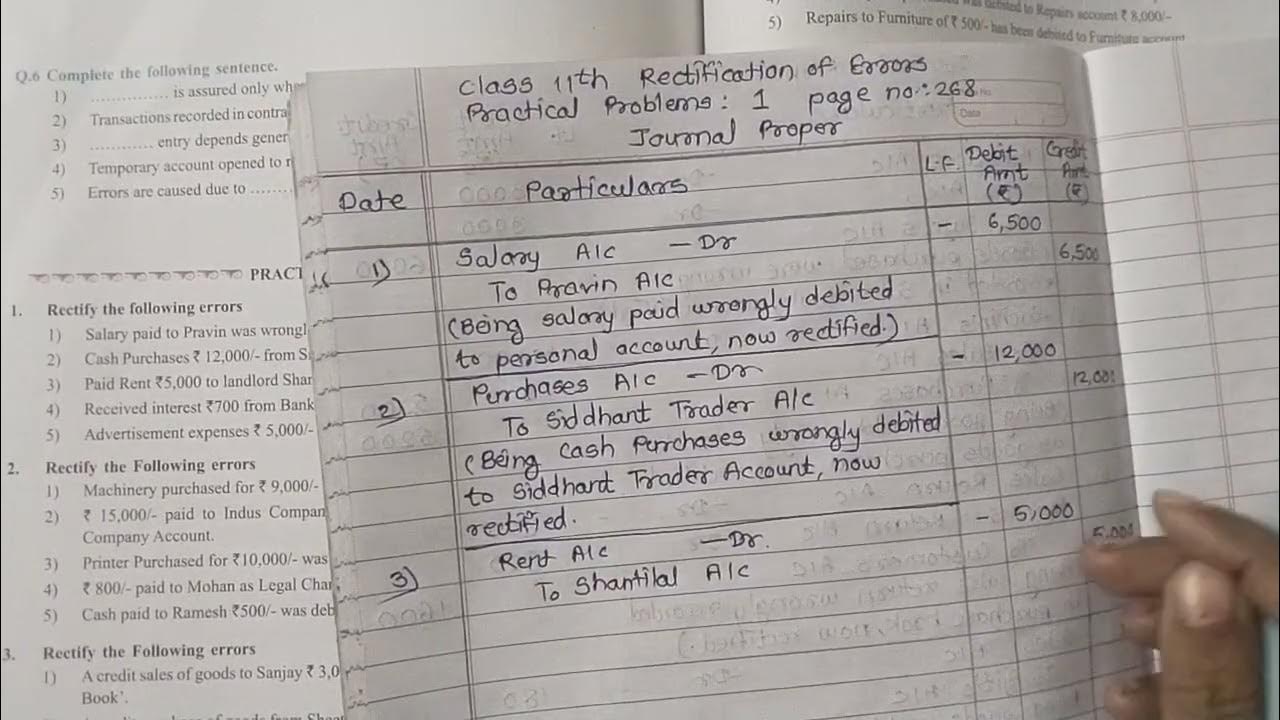 Q.6 Complete the following sentence.
1) ............... is assured only
2) Transactions recorded in contra
3) ............ entry depends
4) Temporary account opened to
5) Errors are caused due to ........
debited to Repairs account ₹ 8,000/-
5) Repairs to Furniture of ₹ 500/- has been debited to Furniture account
PRACT
1. Rectify the following errors
1) Salary paid to Pravin was
2) Cash Purchases ₹ 12,000/- from
3) Paid Rent ₹5,000 to landlord
4) Received interest ₹700 from Bank
5) Advertisement expenses ₹ 5,000/-
2. Rectify the Following errors
1) Machinery purchased for ₹ 9,000/-
2) ₹ 15,000/- paid to Indus
Company Account.
3) Printer Purchased for ₹10,000/- was
4) ₹ 800/- paid to Mohan as Legal
5) Cash paid to Ramesh ₹500/- was
3. Rectify the Following errors
1) A credit sales of goods to Sanjay ₹ 3,0
Book'.
Class 11th Rectification of Errors
Practical Problems: 1 page no.: 268
Journal Proper
Date Particulars L.F. Debit Amt (₹) Credit Amt (₹)
1) Salary A/c - Dr - 6,500
To Pravin A/c 6,500
(Being salary paid wrongly debited
to personal account, now rectified.)
2) Purchases A/c - Dr - 12,000
To Siddhant Trader A/c 12,00
(Being cash Purchases wrongly debited
to Siddhant Trader Account, now
rectified.
3) Rent A/c - Dr. - 5,000
To Shantilal A/c 5,000